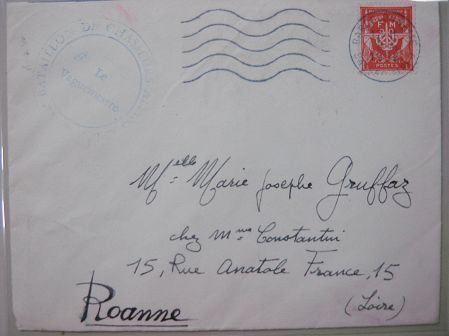 BATAILLON DE CHASSEURS
Le
Vaguemestre
F M
POSTES
Melle Marie Josephe Gruffaz
chez Mme Constantini
15, Rue Anatole France, 15
Roanne
(Loire)